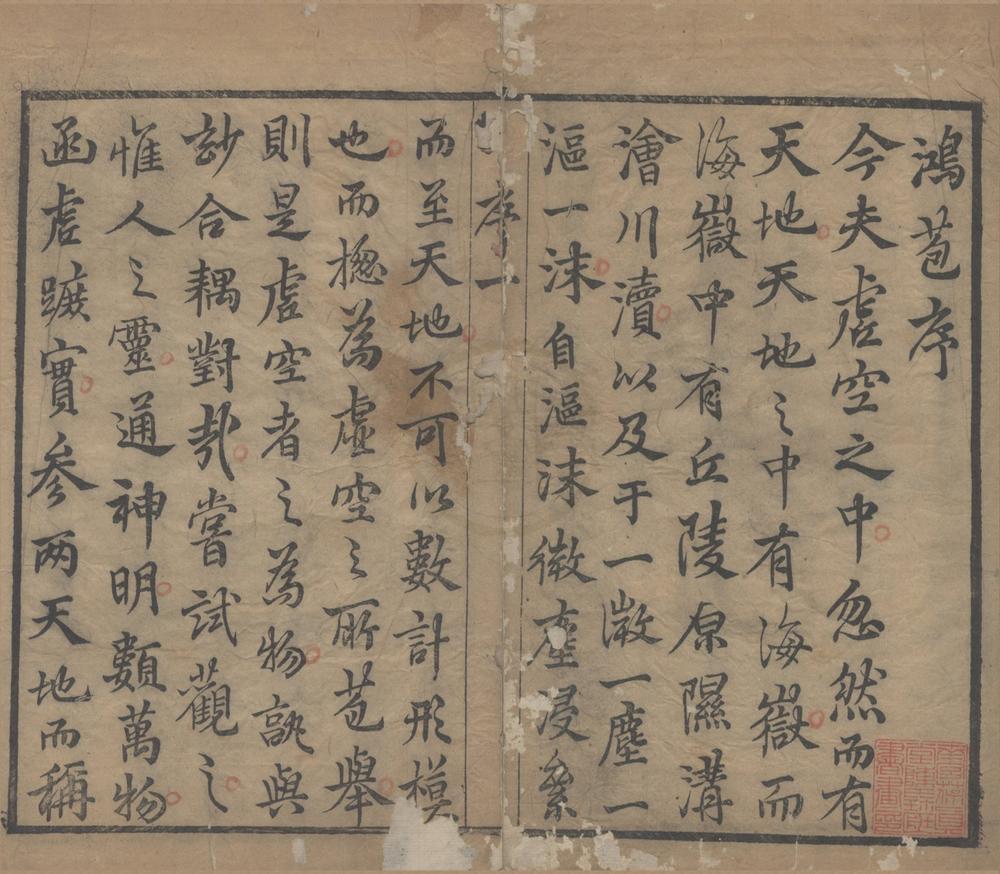 鴻苞序
今夫虛空之中忽然而有
天地天地之中有海嶽而
海嶽中有丘陵原隰溝
澮川瀆以及于一微一塵一
漚一沫自漚沫微塵浸纍
序 一
而至天地不可以數計形模
也而揔為虛空之所苞舉
則是虛空者之為物孰與
玅合耦對哉嘗試觀之
惟人之靈通神明類萬物
函虛蹠實參兩天地而稱